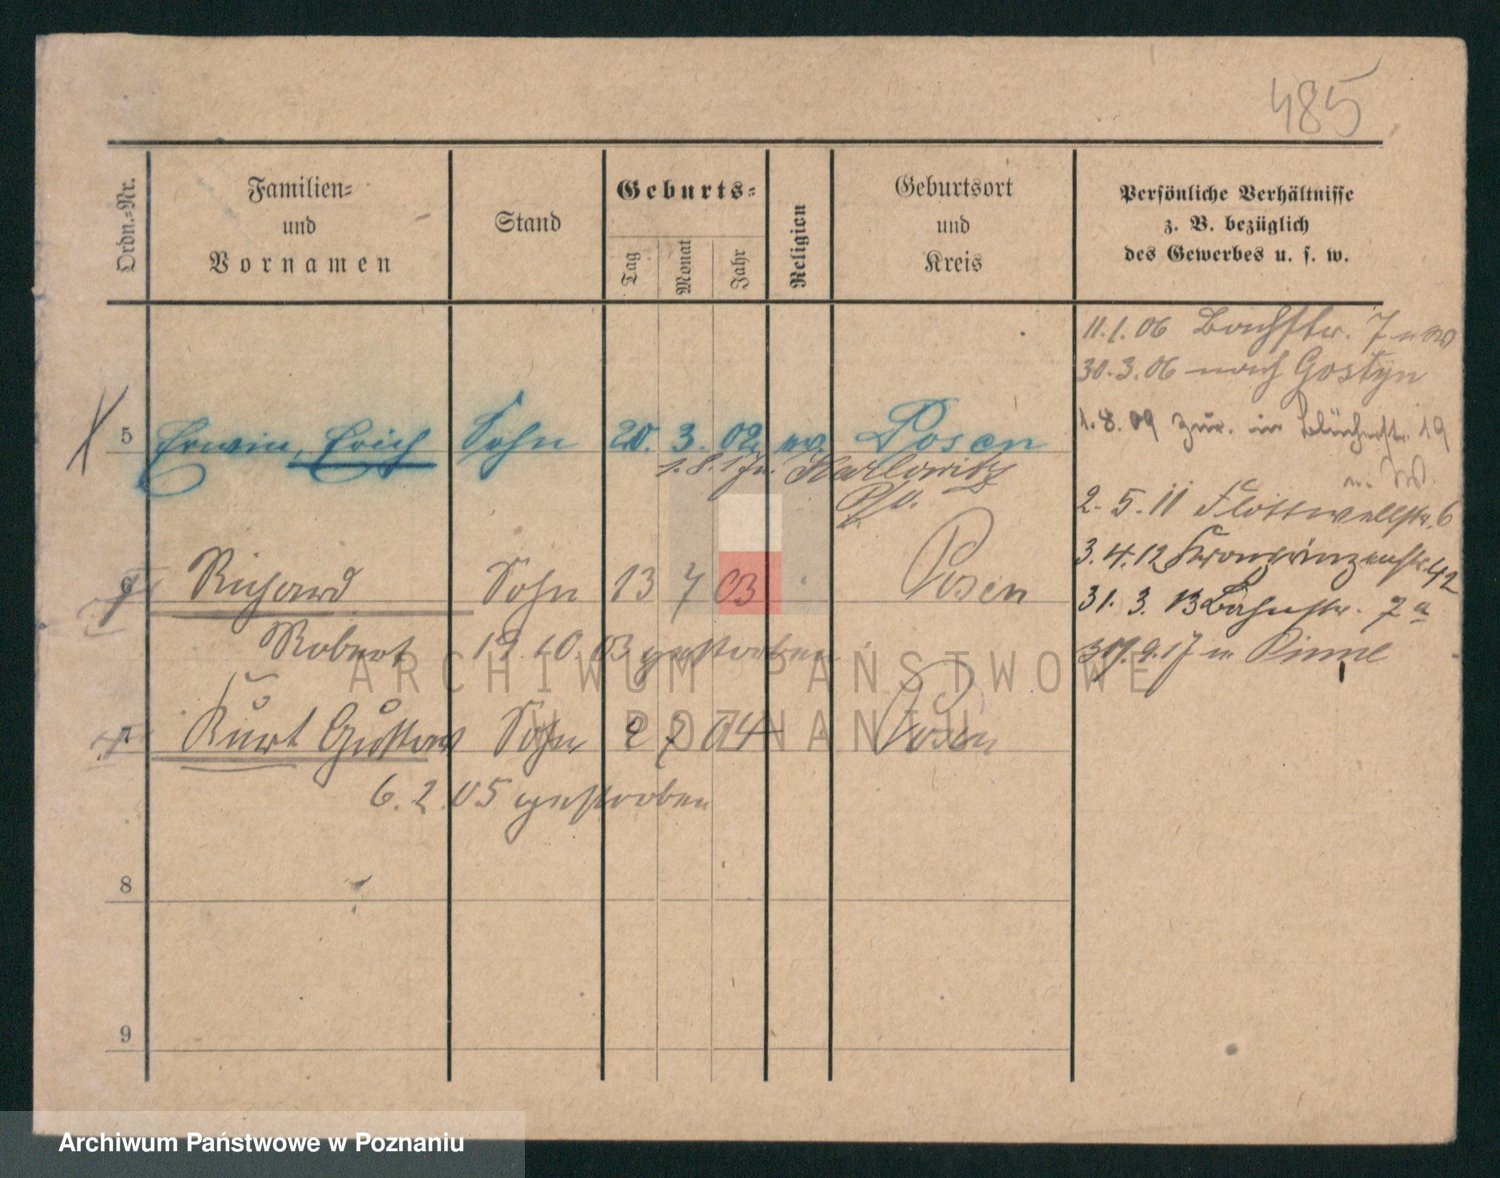 485
Ordn.-Nr.
Familien-
und
Vornamen
Stand
Geburts-
Tag
Monat
Jahr
Religion
Geburtsort
und
Kreis
Persönliche Verhältnisse
z. B. bezüglich
des Gewerbes u. s. w.
11.1.06 Bachstr. 7
30.3.06 nach Gostyn
5 Erwin, Erich Sohn 20. 3. 02. ev. Posen
1.8.17 n. Karlowitz
1.8.09 zur. in Blücherstr. 19
2.5.11 Flottwellstr. 6
3.4.12 Kronprinzenstr. 42
6 Richard Sohn 13 7 03 Posen
31. 3. 13 Bahnstr. 7a
Robert 19.10.03 gestorben
9.17 n. Pinne
7 Kurt Gustav Sohn 2 7 04 Posen
6.2.05 gestorben
8
9
ARCHIWUM PAŃSTWOWE
W POZNANIU
Archiwum Państwowe w Poznaniu